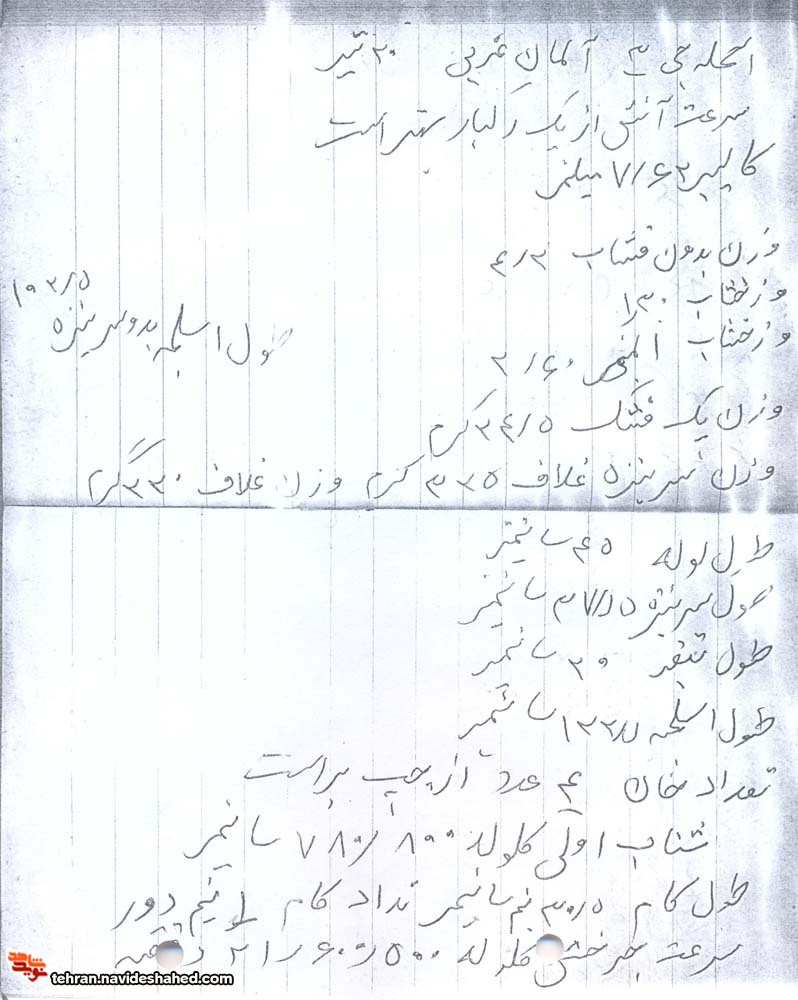 اسلحه جی ۳ آلمان غربی ۲۰ تیر
سرعت آتش از یک رگبار بهتر است
کالیبر ۷/۶۲ میلیمتر
وزن بدون فشنگ ۴/۳
وزن خشاب
وزن خشاب
طول اسلحه بدو سرنیزه
وزن یک فشنگ ۲۴/۵ گرم
وزن سرنیزه غلاف ۳۳۵ گرم وزن غلاف ۲۳۰ گرم
طول لوله ۴۵ سانتیمتر
طول سرنیزه ۳۷/۵ سانتیمتر
طول تیغه ۲۰ سانتیمتر
طول اسلحه سانتیمتر
تعداد خان ۴ عدد از چپ براست
شتاب اولی گلوله ۸۰۰ / ۷۸۰ سانتیمتر
طول گام ۳۰/۵ سانتیمتر تعداد گام نیم دور
سرعت چرخش گلوله دقیقه
شاهد
نوید
tehran.navideshahed.com